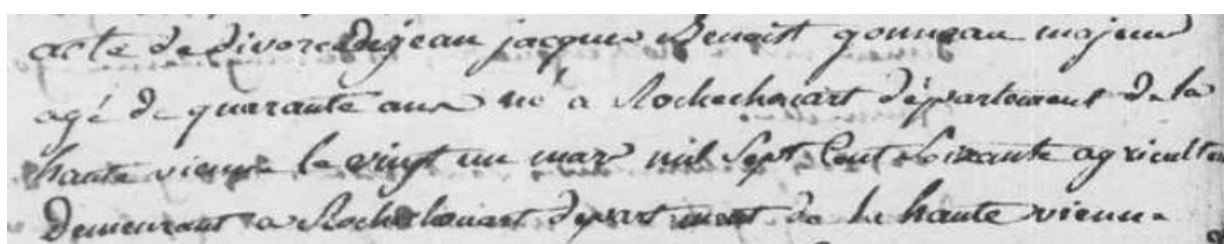 acte de divorce de jean jacques Benoist gonneau majeur
agé de quarante ans né a Rochechouart département de la
haute vienne le vingt un mars mil Sept Cent Soixante agriculte
demeurant a Rochechouart départ ment de la haute vienne